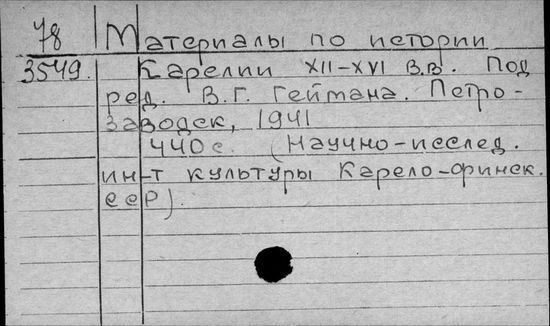 78
3549.
Материалы по истории
Карелии XII-XVI в.в. Под
ред. В.Г. Геймана. Петро-
заводск, 1941
440с. (Научно-исслед.
ин-т культуры Карело-финск.
ССР).